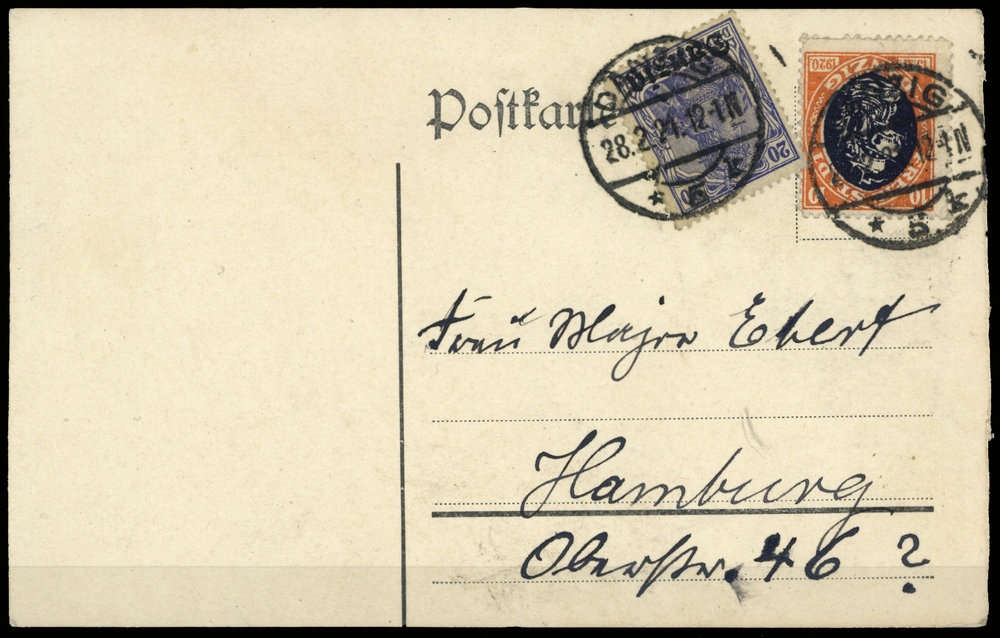 Postkarte
28.2.21.12-1N
* 5 k
20
1920
* 5 k
Frau Major Ebert
Hamburg
Oberstr. 46 ?